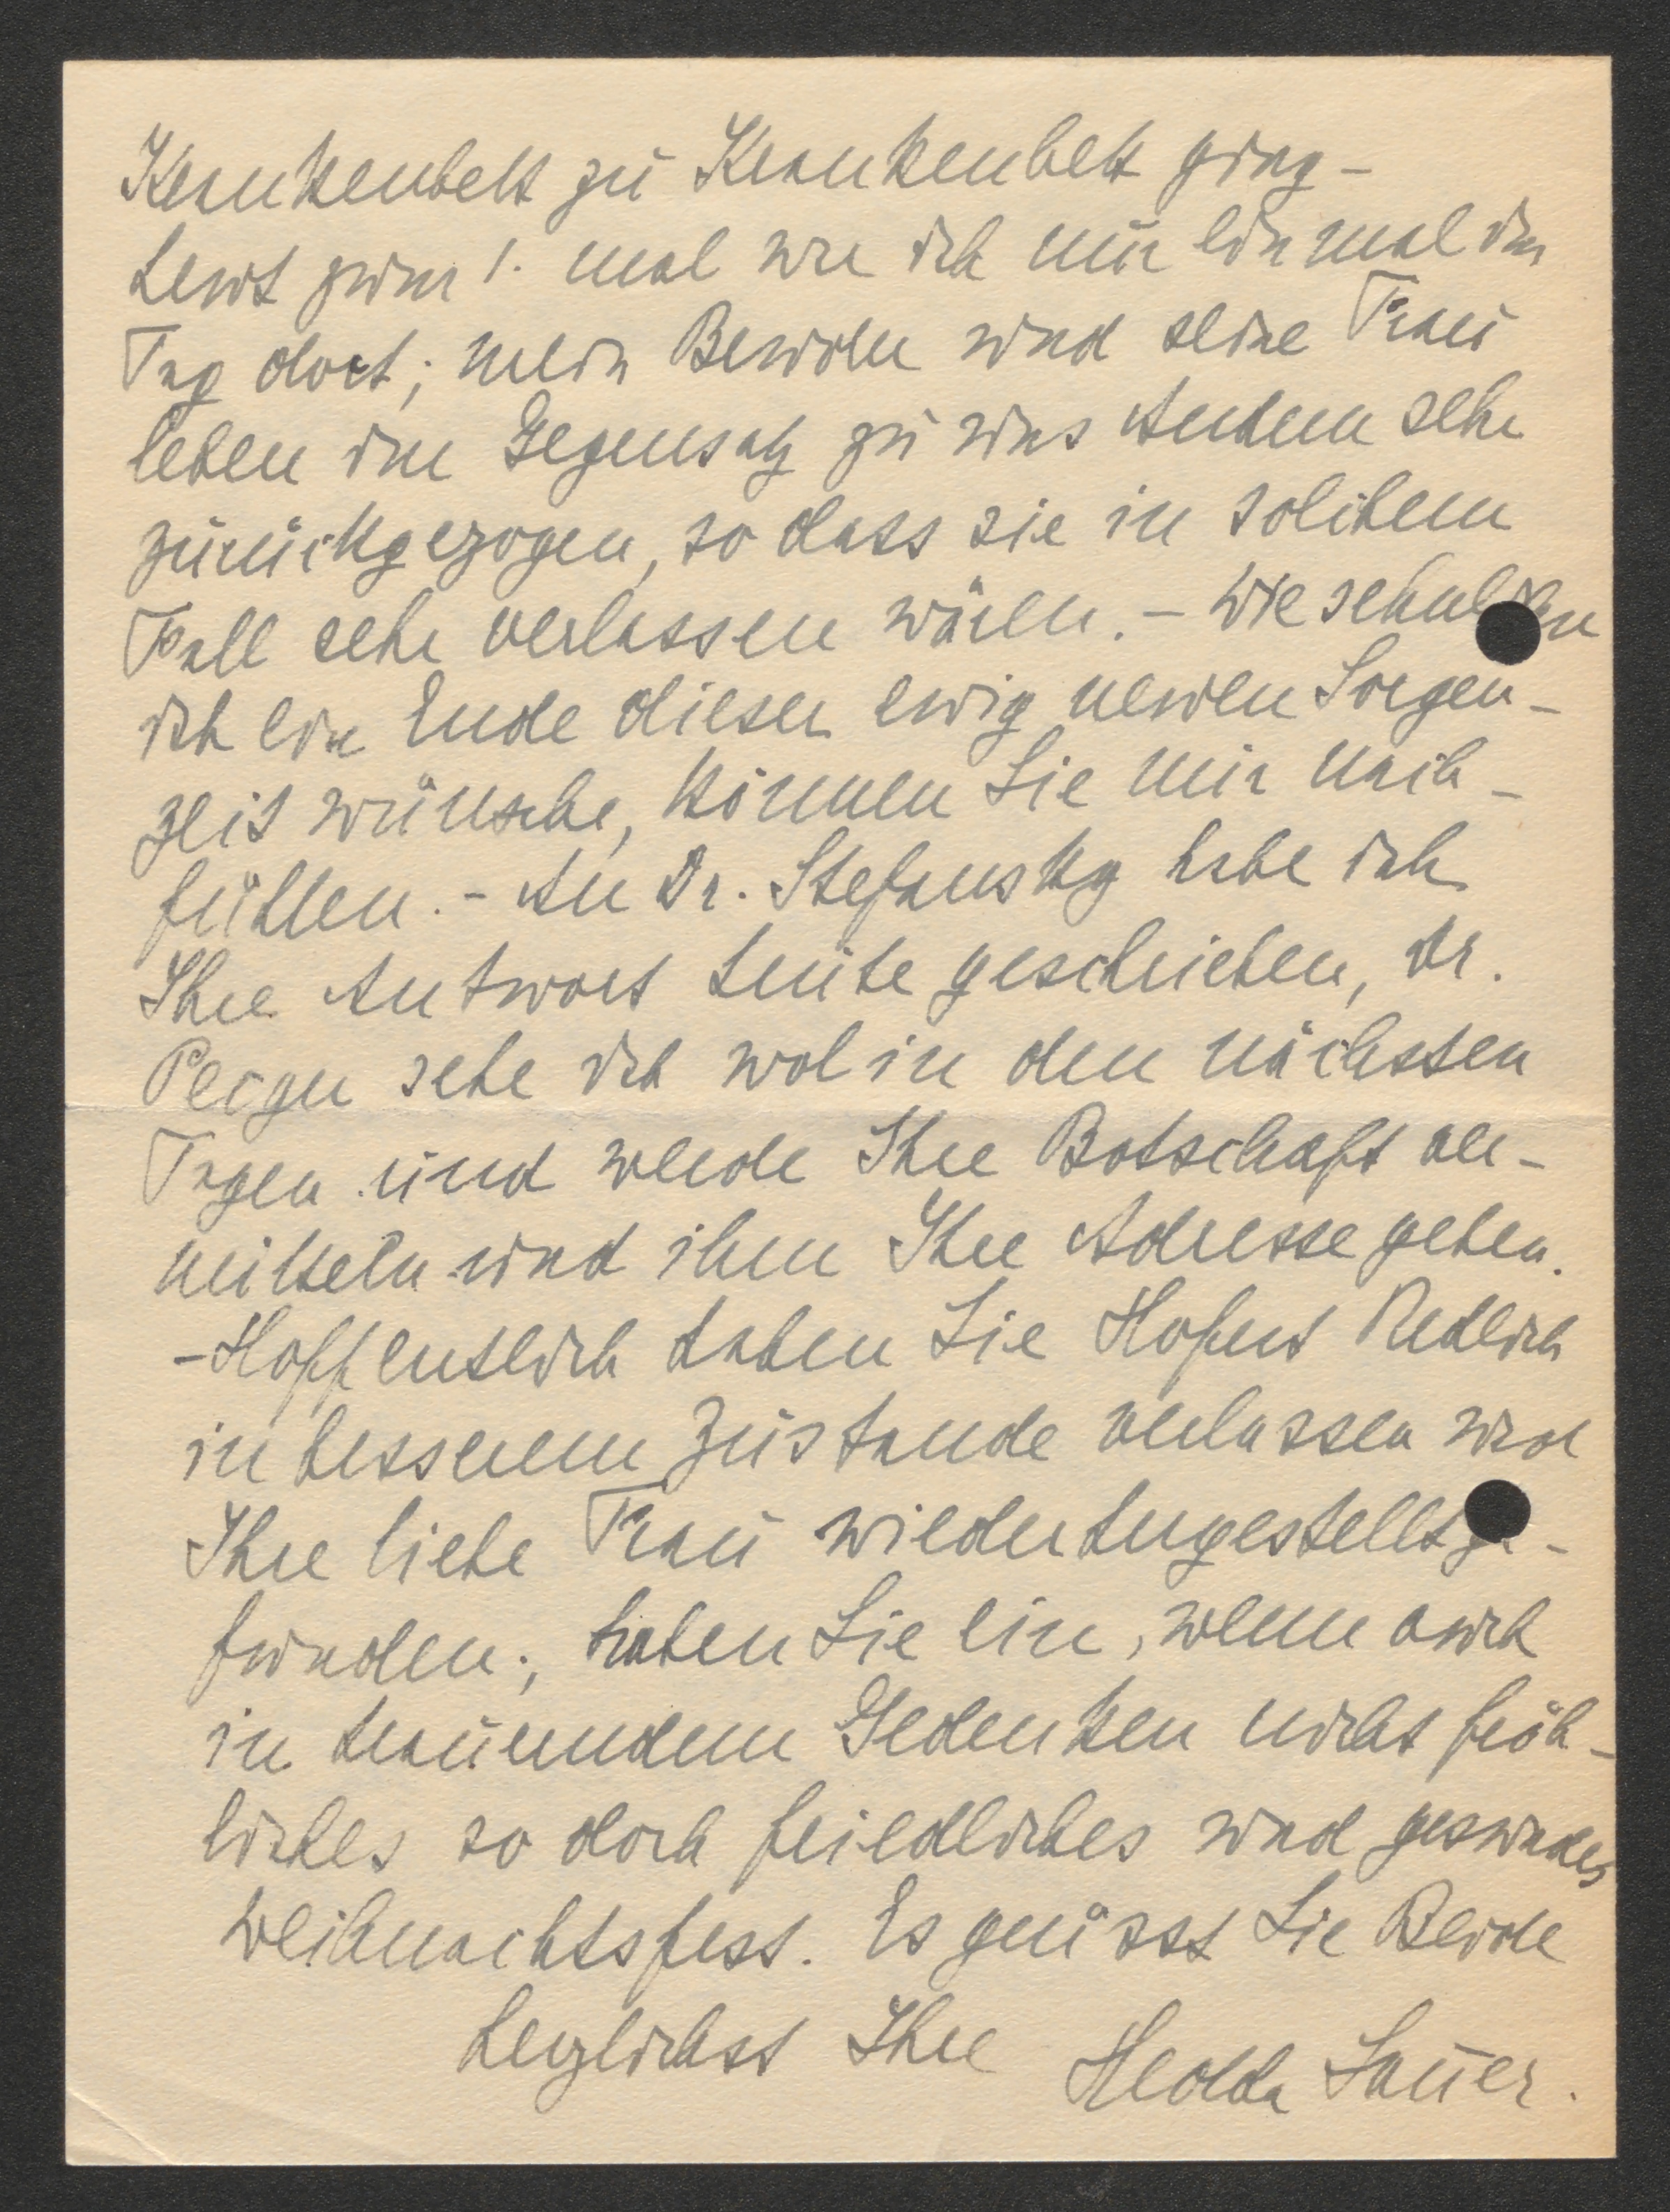 Krankenbett zu Krankenbett ging -
heut zum 1. mal war ich nur einmal im
Tag dort; mein Bruder und seine Frau
leben im Gegensatz zu uns Andern sehr
zurückgezogen, so dass sie in solchem
Fall sehr verlassen wären. - Wie sehnlich
ich ein Ende dieser ewig neuen Sorgen-
zeit wünsche, können Sie mir nach-
fühlen. - An Dr. Stefansky habe ich
Ihre Antwort heute geschrieben, Dr.
sehe ich wol in den nächsten
Tagen und werde Ihre Botschaft ver-
mitteln und ihm Ihre Adresse geben.
- Hoffentlich haben Sie Hofrat Redlich
in besserem Zustande verlassen und
Ihre liebe Frau wiederhergestellt ge-
funden; haben Sie ein, wenn auch
in trauerndem Gedenken nicht fröh-
liches so doch friedliches und gesundes
Weihnachtsfest. Es grüsst Sie Beide
herzlichst Ihre Hedda Sauer.